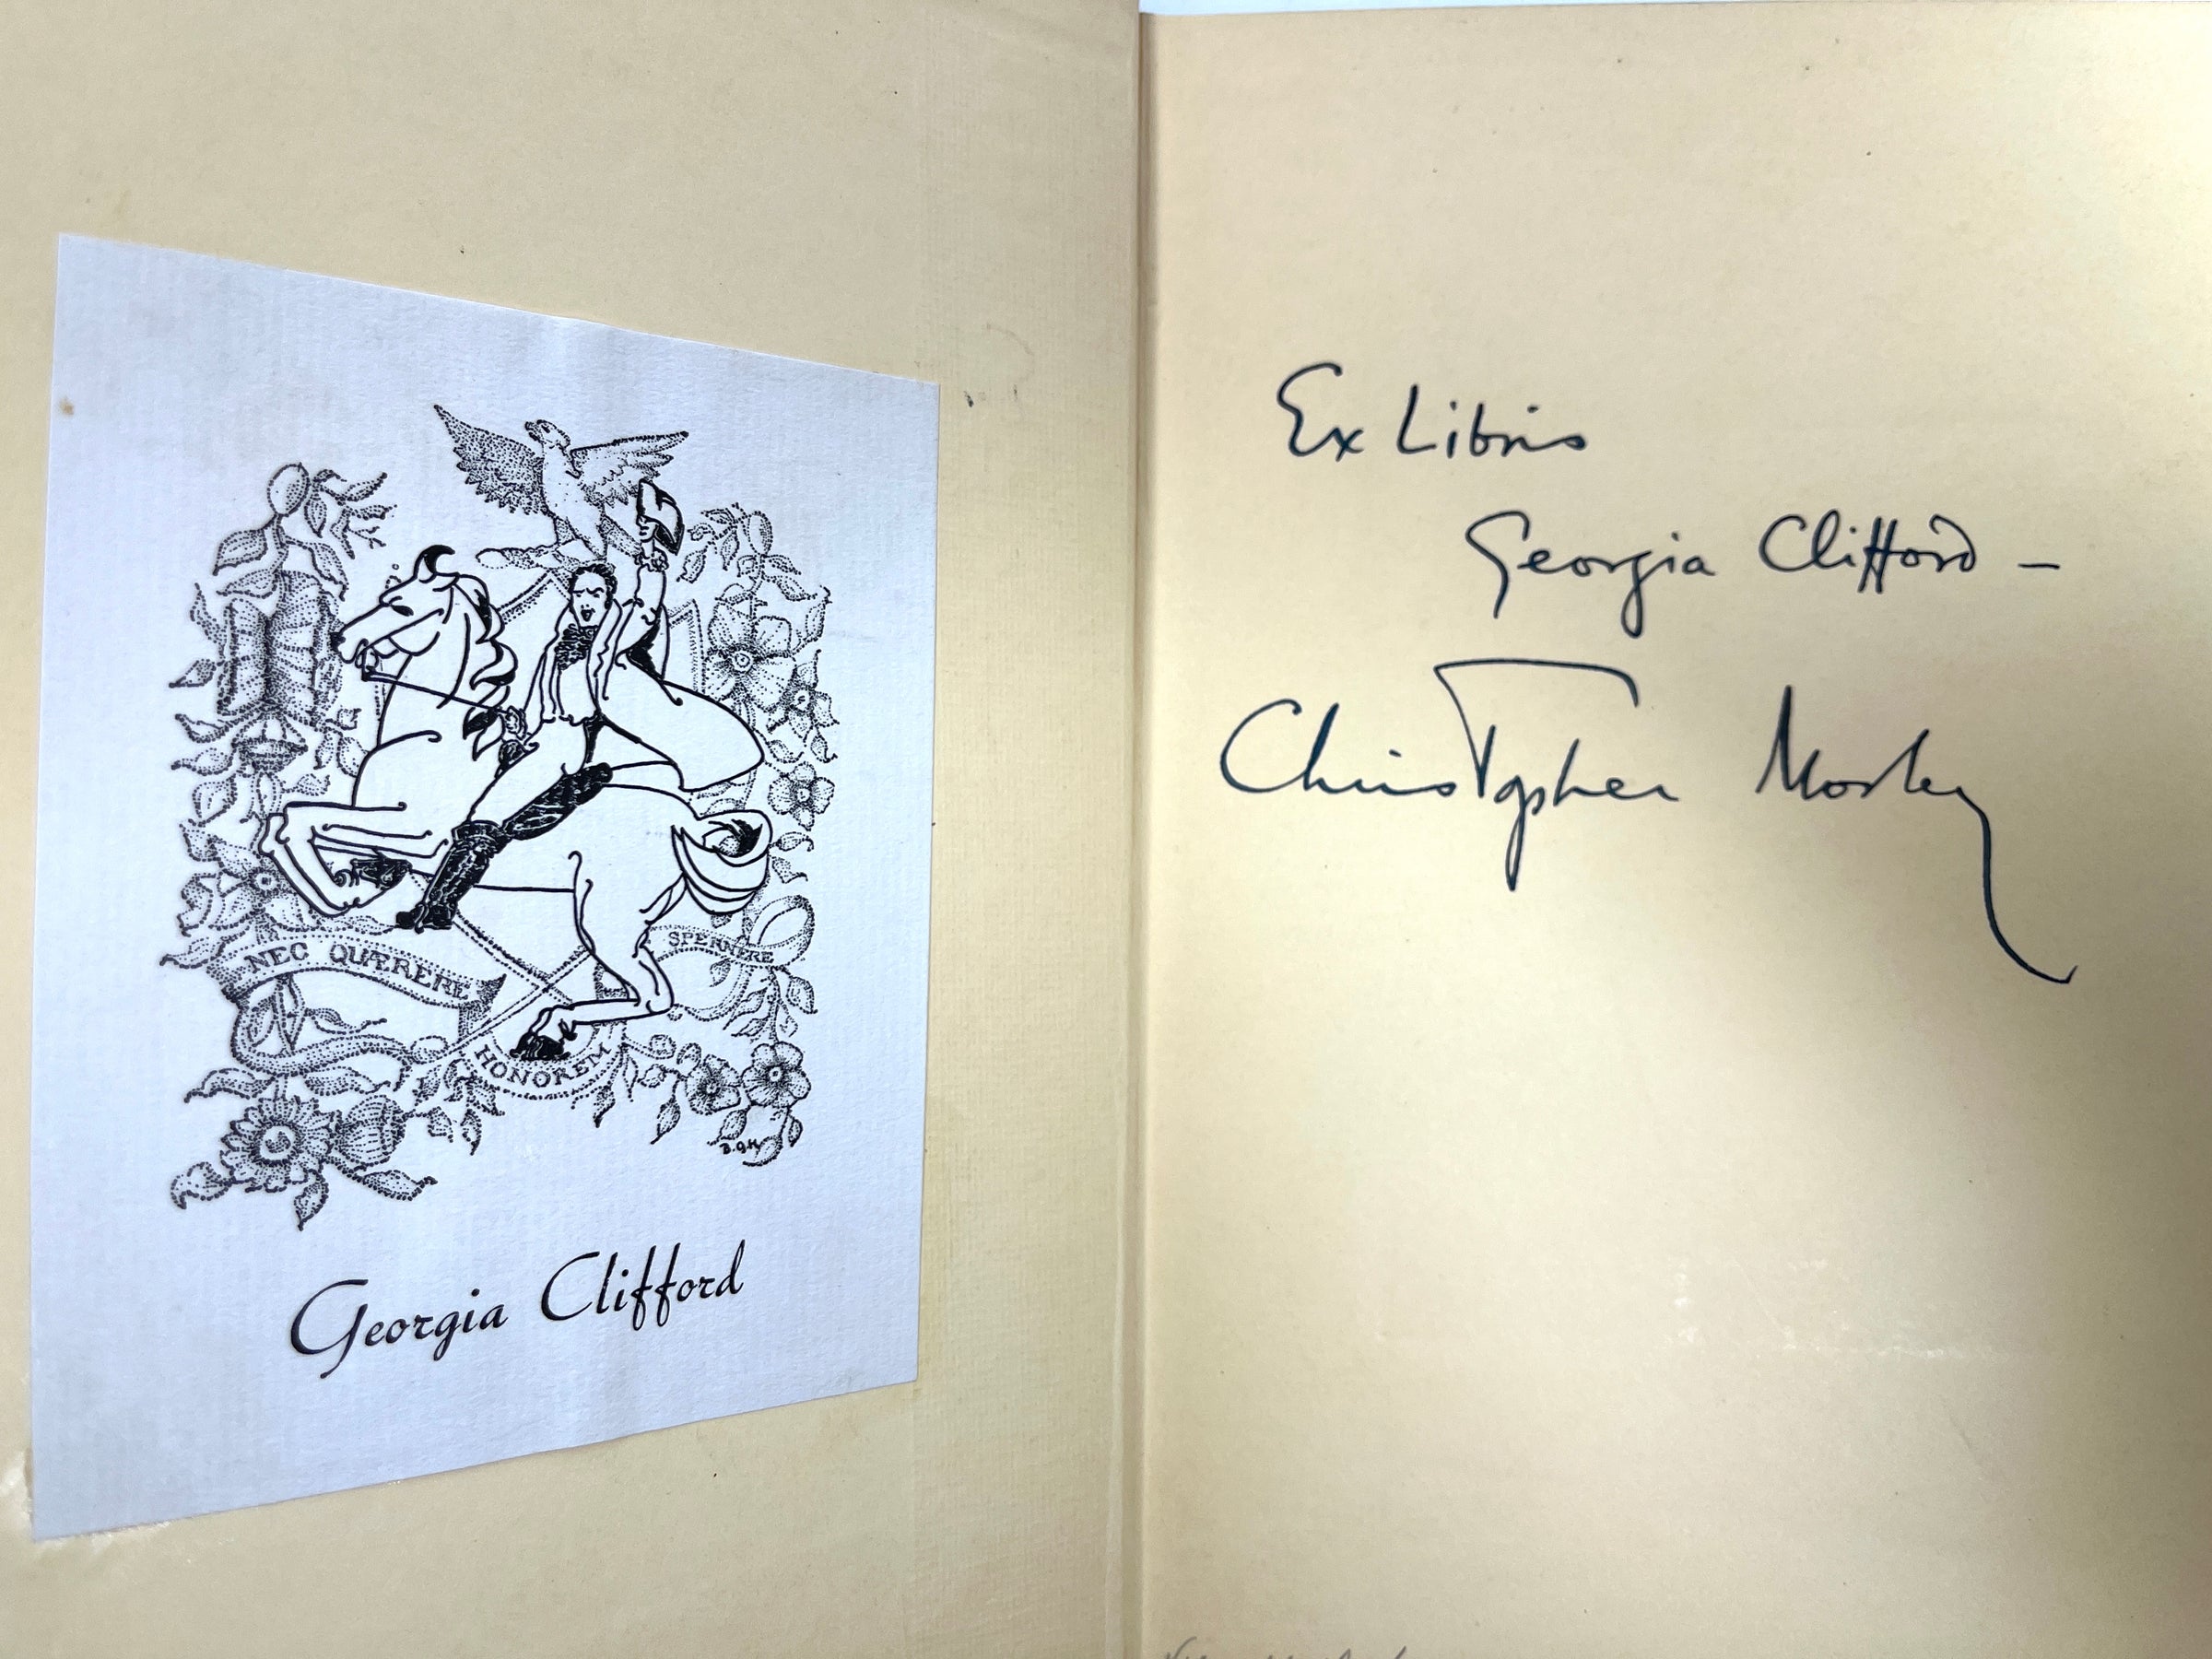 NEC QUÆRERE
SPERNERE
HONOREM
Georgia Clifford
Ex Libris
Georgia Clifford –
Christopher Morley